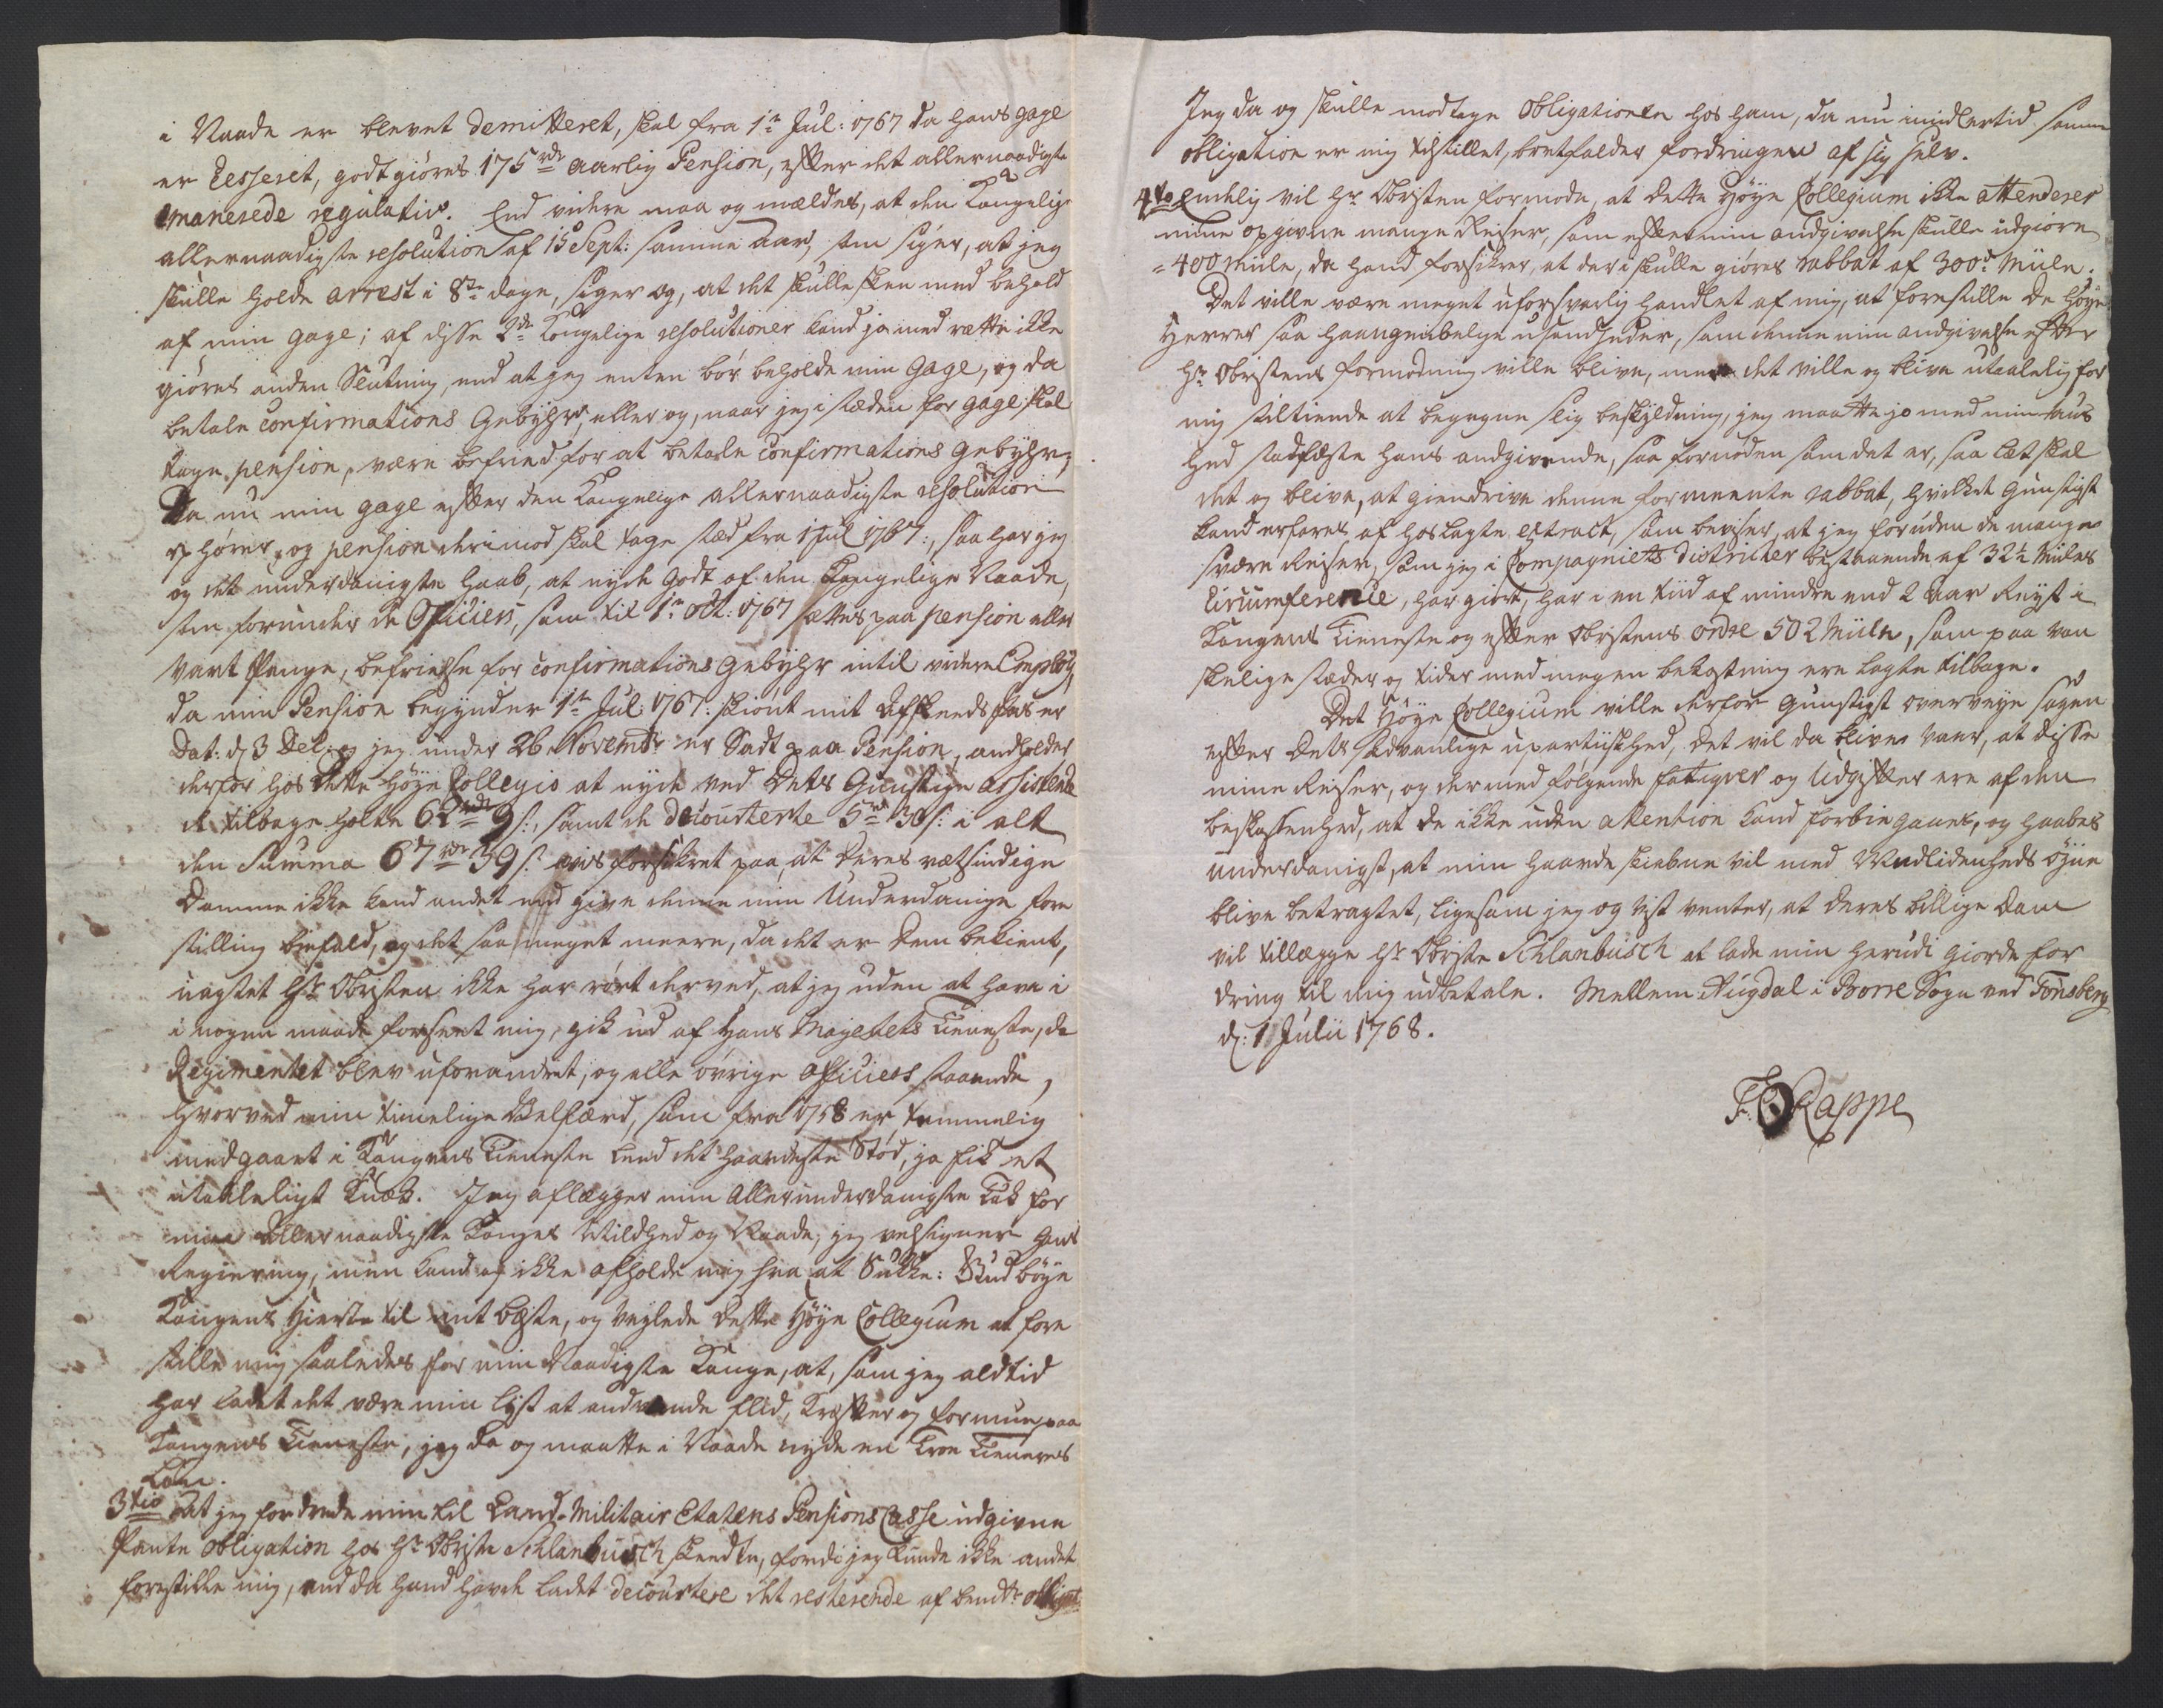 i Naade er blevet demitteret, skal fra 1te Jul: 1767 da hans gage
er cesseret, godtgiöres 175 rdr aarlig Pension, efter det allernaadigste
emanerede regulativ. End videre maa og meldes, at den Kongelige
allernaadigste resolution af 15 Sept: samme aar, som siger, at jeg
skulle holde arrest i 8te dage, siger og, at det skulle skee med behold
af min gage; af disse 2de Kongelige resolutioner kand jo med rætte ikke
giöres anden Slutning, end at jeg enten bör beholde min gage, og da
betale confirmations Gebyhr, eller og, naar jeg i stæden for gage skal
tage pension, være befried for at betale confirmations gebyhr;
Da nu min gage efter den Kongelige allernaadigste resolution
ophörer, og pension derimod skal tage stæd fra 1 Jul 1767:, saa har jeg
og det underdanigste Haab, at nyde godt af den Kongelige Naade,
som forunder de Officiers, som til 1te Oct: 1767 sættes paa pension eller
vart Penge, befrielse for confirmations Gebyhr intil videre Employ,
da min Pension begynder 1te Jul: 1767: skiönt mit Afskeeds Pas er
Dat: d 3 Dec: og jeg under 26 Novembr er Sadt paa Pension, andholder
derfor hos Dette Höye Collegio at nyde ved Dets Gunstige assistence
de tilbage holte 62 rdr 9 s:, samt de decourterte 5 rd 30 s: i alt
den Summa 67 rdr 39 s: vis forsikret paa, at Deres rætsindige
Domme ikke kand andet end give denne min Underdanige fore
stilling biefald, og det saa meget meere, da det er Dem bekient,
uagtet Hr Obristen ikke har rört derved, at jeg uden at have i
i nogen maade forseet mig, gik ud af Hans Mayestets Tieneste, da
Regimentet blev uforandret, og alle övrige officiers staaende,
hvorved min timelige Velfærd, som fra 1758 er temmelig
medgaaet i Kongens Tieneste leed det haardeste Stöd, ja fik et
utaaleligt Knæk. Jeg aflægger min Allerunderdanigste Tak for
min Allernaadigste Konges Mildhed og Naade, jeg velsigner hans
Regiering, men kand og ikke afholde mig fra at Sukke: Gud böye
Kongens Hierte til mit beste, og veylede dette Höye Collegium at fore
stille mig saaledes for min Naadigste Konge, at, som jeg aldtid
har ladet det være min lyst at andvende flid, kræfter og formue paa
Kongens Tieneste, jeg da og maatte i Naade nyde en Troe Tieneres
Lön.
3tio At jeg fordrede min til Land-Militair Etatens Pensions Casse udgivne
Pante obligation hos Hr Obriste Schlanbusch skeedte, fordi jeg kunde ikke andet
forestille mig, end da hand havde ladet decourtere det resterende af bemte obligat
Jeg da og skulle modtage Obligationen hos ham, da nu imidlertid samme
obligation er mig tilstillet, bortfalder fordringen af sig selv.
4to Endelig vil Hr Obristen formode, at dette Höye Collegium ikke attenderer
mine opgivne mange Reiser, som efter min andgivelse skulle udgiöre
= 400 Miile, da hand forsikrer, at der i skulle giöres rabbat af 300de Miile.
Det ville være meget uforsvarlig handlet af mig, at forestille de Höye
Herrer saa haandgribelige usandheder, som denne min andgivelse efter
Hr Obristens formodning ville blive, men det ville og blive utaalelig for
mig stiltiende at begegne slig beskyldning, jeg maatte jo med min taus
hed stadfæste hans andgivende, saa fornöden som det er, saa let skal
det og blive, at giendrive denne formeente rabbat, hvilket Gunstigst
kand erfares af hoslagte extract, som beviser, at jeg foruden de mange
svære Reiser, som jeg i Compagniets districter bestaaende af 32½ Miiles
Circumference, har giort, har i en tiid af mindre end 2 aar Reyst i
Kongens Tieneste og efter Obristens ordre 502 Miile, som paa van
skelige stæder og tider med megen bekostning ere lagte tilbage.
Det Höye Collegium ville derfor Gunstigst overveye sagen
efter Dets sædvanlige upartiiskhed, det vil da blive vaer, at disse
mine Reiser, og dermed fölgende fatiqver og Udgifter ere af den
beskaffenhed, at de ikke uden attention kand forbiegaaes, og haabes
underdanigst, at min haarde skiebne vil med Medlidenheds öyne
blive betragtet, ligesom jeg og vist venter, at Deres billige Dom
vil tillægge Hr Obriste Schlanbusch at lade min herudi giorde for
dring til mig udbetale. Mellem Augdal i Borre Sogn ved Tönsberg
d: 1 Julii 1768.
F. C. Rappe